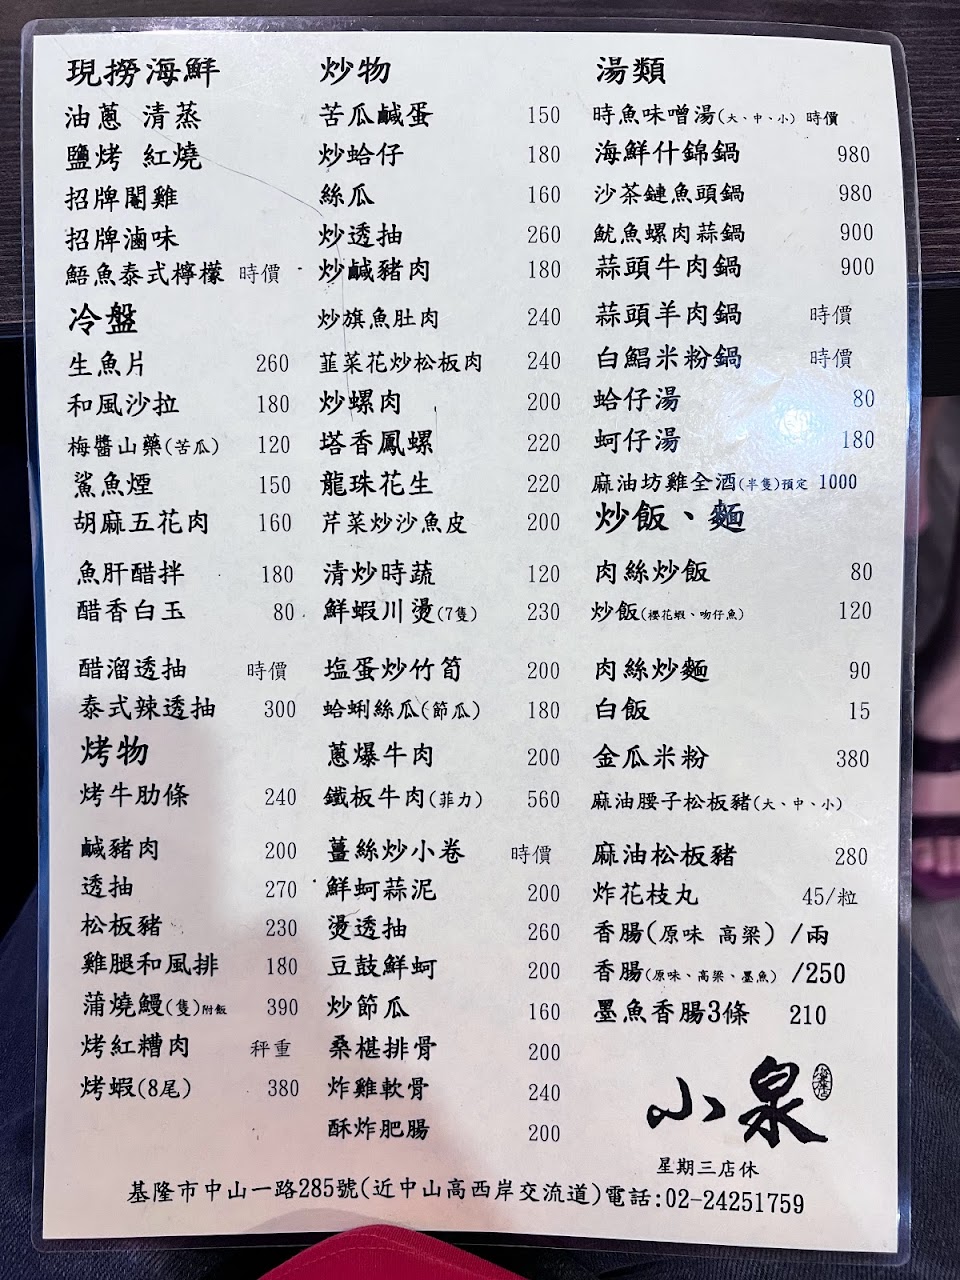 現撈海鮮
油蔥 清蒸
鹽烤 紅燒
招牌閹雞
招牌滷味
鯃魚泰式檸檬 時價
冷盤
生魚片 260
和風沙拉 180
梅醬山藥(苦瓜) 120
鯊魚煙 150
胡麻五花肉 160
魚肝醋拌 180
醋香白玉 80
醋溜透抽 時價
泰式辣透抽 300
烤物
烤牛肋條 240
鹹豬肉 200
透抽 270
松板豬 230
雞腿和風排 180
蒲燒鰻(隻)附飯 390
烤紅糟肉 秤重
烤蝦(8尾) 380
炒物
苦瓜鹹蛋 150
炒蛤仔 180
絲瓜 160
炒透抽 260
炒鹹豬肉 180
炒旗魚肚肉 240
韮菜花炒松板肉 240
炒螺肉 200
塔香鳳螺 220
龍珠花生 220
芹菜炒沙魚皮 200
清炒時蔬 120
鮮蝦川燙(7隻) 230
塩蛋炒竹筍 200
蛤蜊絲瓜(節瓜) 180
蔥爆牛肉 200
鐵板牛肉(菲力) 560
薑絲炒小卷 時價
鮮蚵蒜泥 200
燙透抽 260
豆鼓鮮蚵 200
炒節瓜 160
桑椹排骨 200
炸雞軟骨 240
酥炸肥腸 200
湯類
時魚味噌湯(大、中、小) 時價
海鮮什錦鍋 980
沙茶鏈魚頭鍋 980
魷魚螺肉蒜鍋 900
蒜頭牛肉鍋 900
蒜頭羊肉鍋 時價
白鯧米粉鍋 時價
蛤仔湯 80
蚵仔湯 180
麻油坊雞全酒(半隻)預定 1000
炒飯、麵
肉絲炒飯 80
炒飯(櫻花蝦、吻仔魚) 120
肉絲炒麵 90
白飯 15
金瓜米粉 380
麻油腰子松板豬(大、中、小)
麻油松板豬 280
炸花枝丸 45/粒
香腸(原味 高梁) /兩
香腸(原味、高梁、墨魚) /250
墨魚香腸3條 210
小泉
星期三店休
基隆市中山一路285號(近中山高西岸交流道)電話:02-24251759